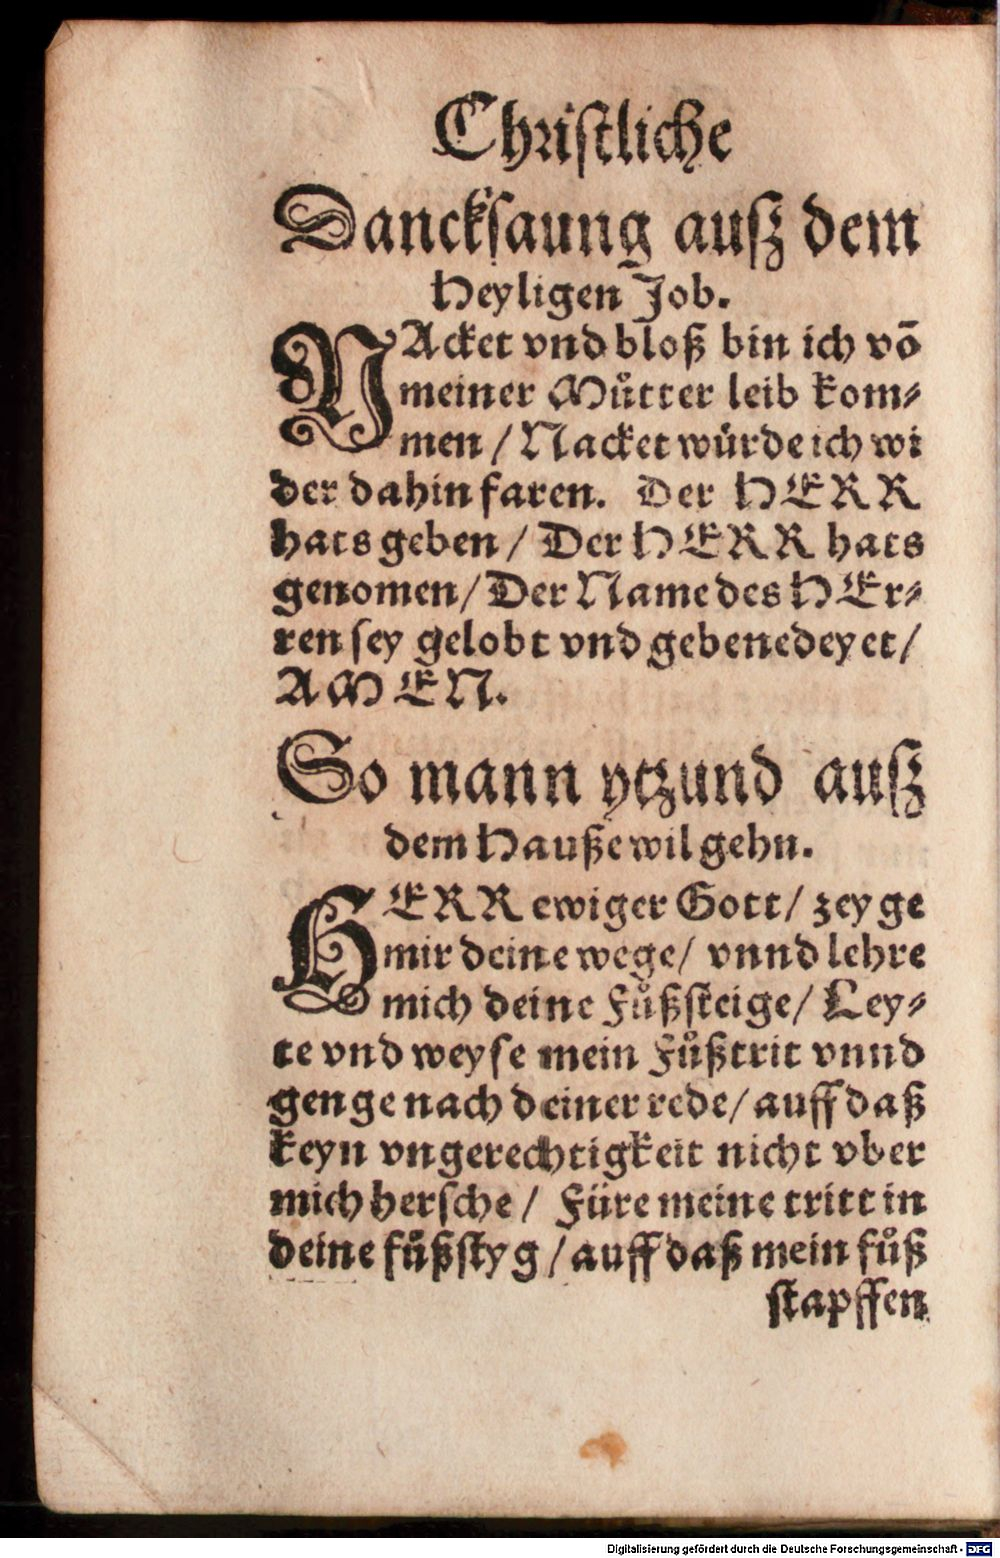 Christliche
Dancksaung ausz dem
Heyligen Job.
NAcket vnd bloß bin ich võ
meiner Můtter leib kom⸗
men / Nacket würde ich wi
der dahin faren. Der HERR
hats geben / Der HERR hats
genomen / Der Name des HEr⸗
ren sey gelobt vnd gebenedeyet /
AMEN.
So mann ytzund ausz
dem Hauße wil gehn.
HERR ewiger Gott / zeyge
mir deine wege / vnnd lehre
mich deine Fůßsteige / Ley⸗
te vnd weyse mein Fůßtrit vnnd
genge nach deiner rede / auff daß
keyn vngerechtigkeit nicht vber
mich hersche / Füre meine tritt in
deine fůßstyg / auff daß mein fůß
stapffen
Digitalisierung gefördert durch die Deutsche Forschungsgemeinschaft - DFG